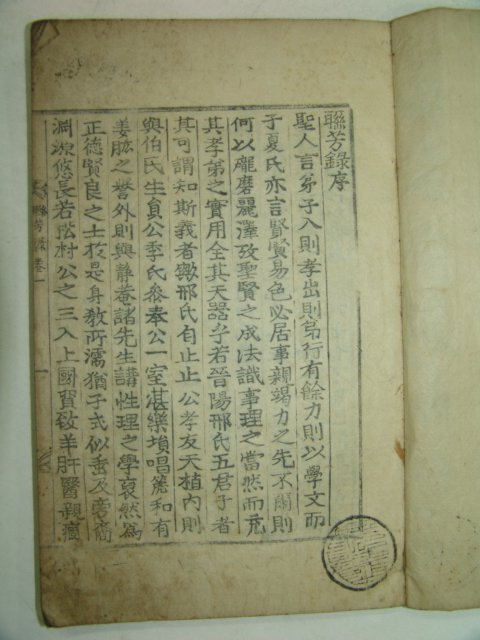 聯芳錄序
聖人言弟子入則孝出則弟行有餘力則以學文而
子夏氏亦言賢賢易色必居事親竭力之先不爾則
何以龐磨麗澤攷聖賢之成法識事理之當然而充
其孝弟之實用全其天器乎若晉陽邢氏五君子者
其可謂知斯義者歟邢氏自止止公孝友天植內則
與伯氏生員公季氏參奉公一室湛樂塤唱篪和有
姜肱之譽外則與靜菴諸先生講性理之學裒然爲
正德賢良之士於是身敎所濡猶子式似垂及旁裔
淵源悠長若松村公之三入上國買致羊肝醫親瘟